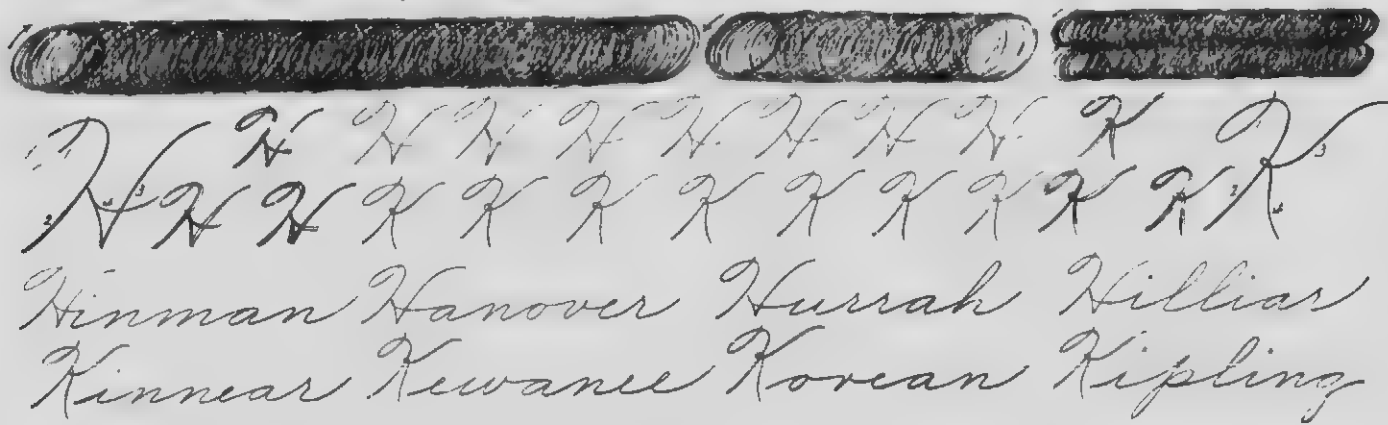 H H H H H H H H H K K
H H K K K K K K K K K
Hinman Hanover Hurrah Hilliar
Kinnear Kewanee Korean Kipling